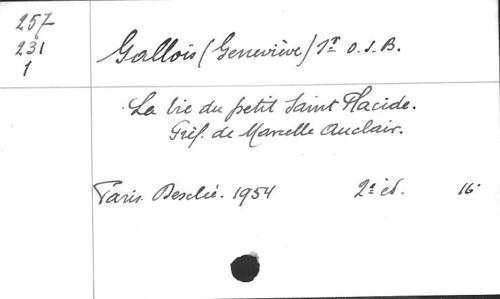 257
231
1
Gallois (Geneviève) Mr O. S. B.
La vie du petit Saint Placide.
Préf. de Marcelle Auclair.
Paris. Desclée. 1954 2e éd. 16°